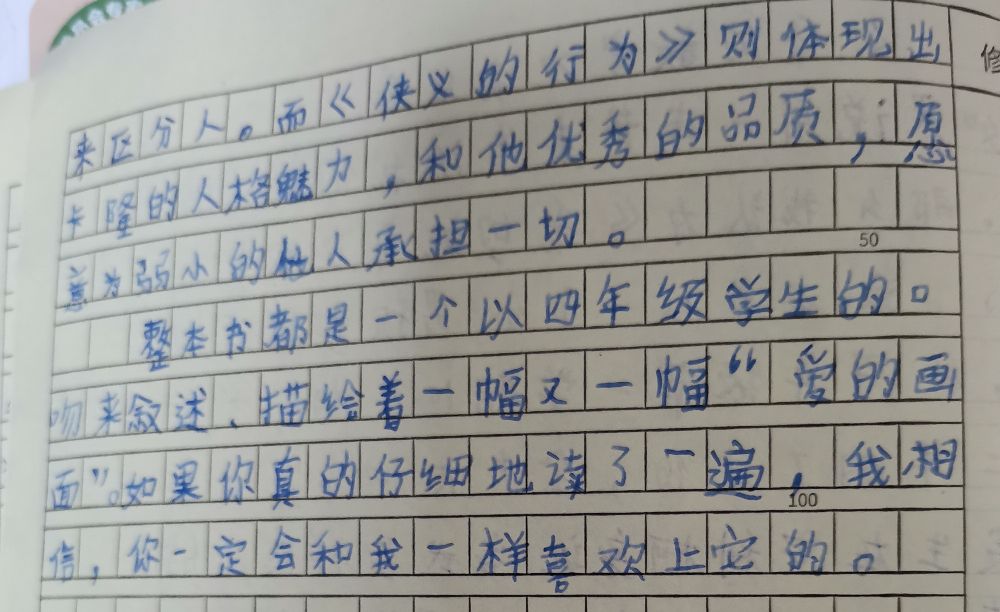 来区分人。而《侠义的行为》则体现出
卡隆的人格魅力,和他优秀的品质,愿
意为弱小的他人承担一切。
50
整本书都是一个以四年级学生的口
吻来叙述、描绘着一幅又一幅“爱的画
面”。如果你真的仔细地读了一遍,我相
100
信,你一定会和我一样喜欢上它的。
修